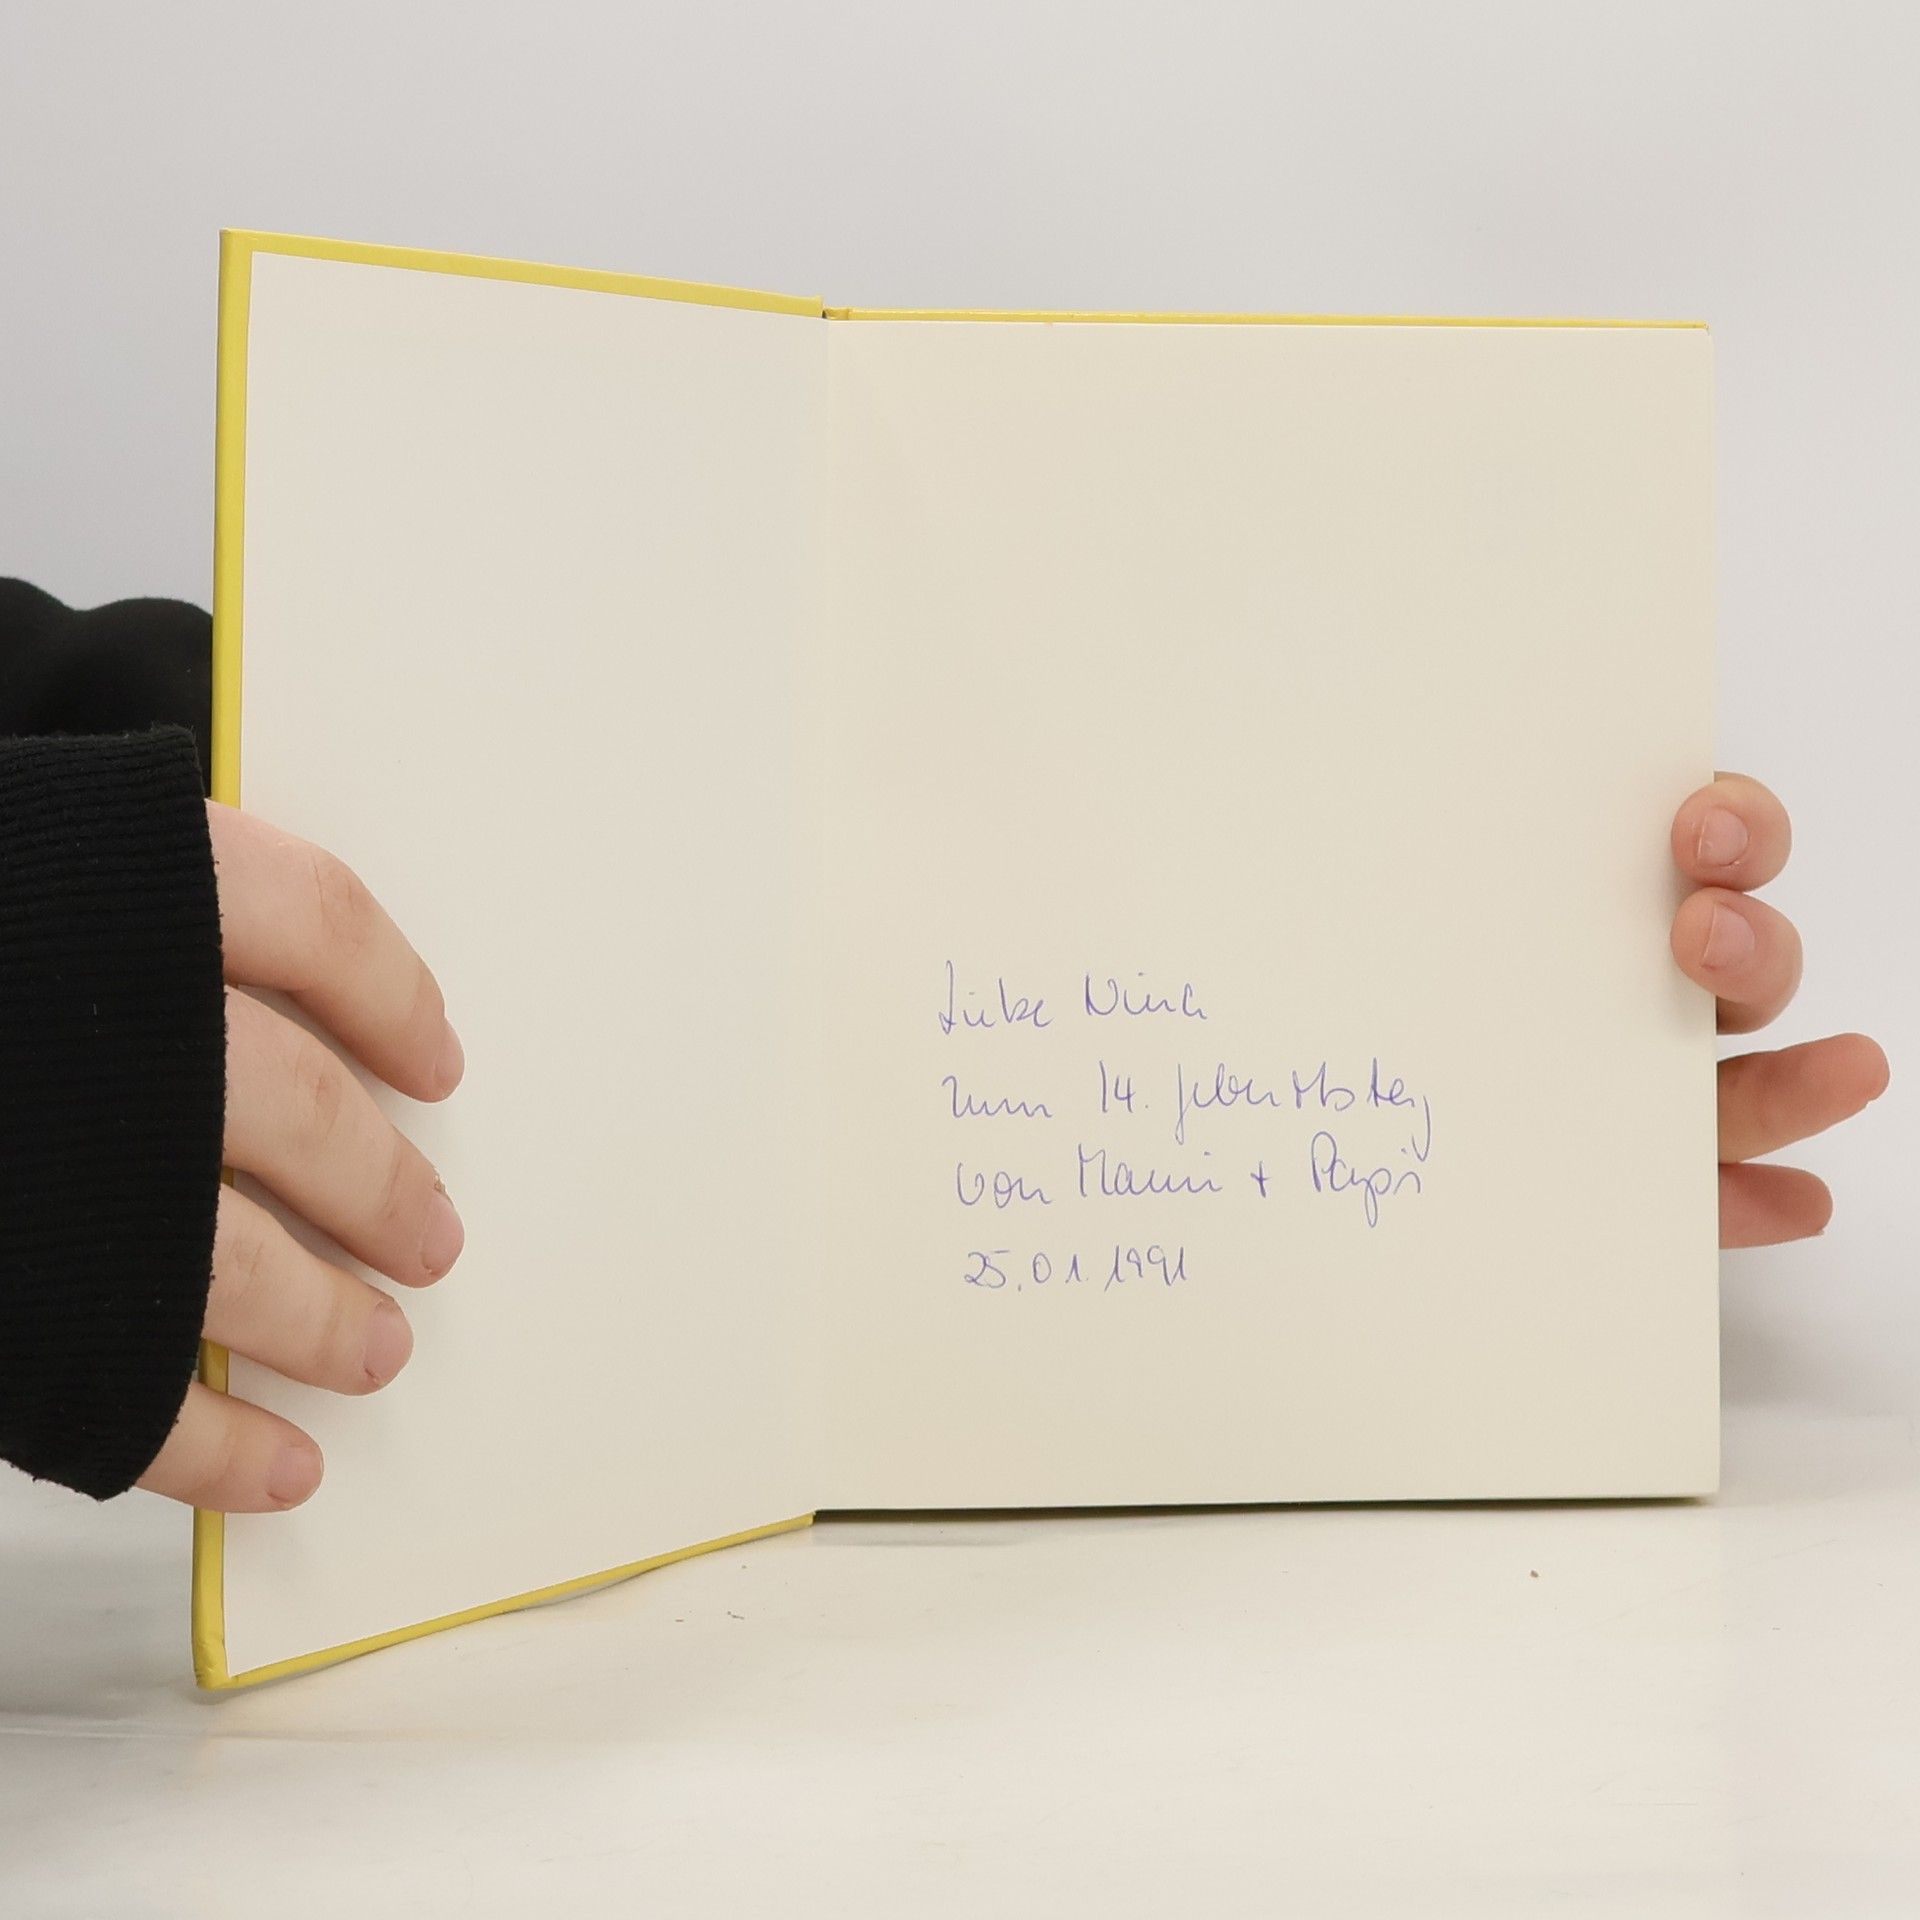 Liebe Nina
zum 14. Geburtstag
von Mami + Papi
25.01.1991